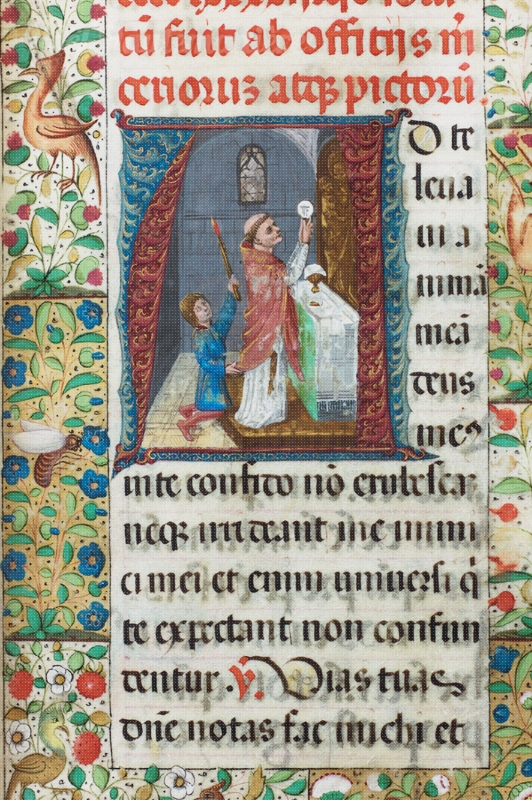 tū fuit ab officijs
atqꝫ pictorū
AD te
leua
ui a
nimā
meā
deus
meꝰ
in te confido nō erubescaꝫ
neqꝫ irrideant me inimi
ci mei et enim uniuersi q̇
te expectant non confun
dentur .v̄. Vias tuas
dn̄e notas fac michi et